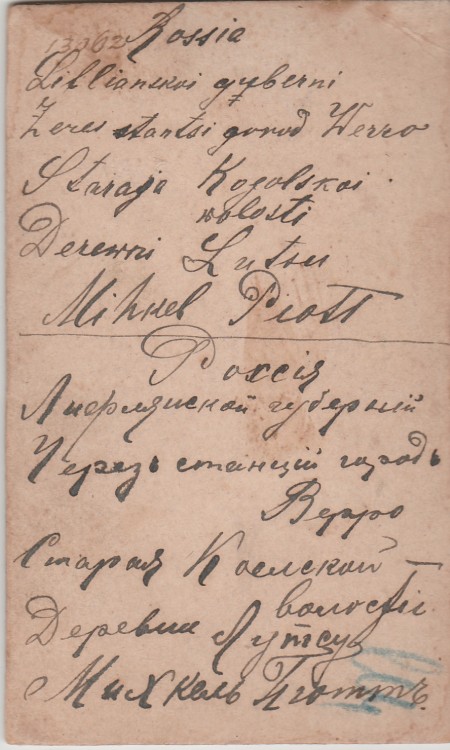 13062 Rossia
Liblianskoi guberni
Zeres stantsi gorod Werro
Staraja Kogolskoi
wolosti
Derewni Lutsu
Mihkel Piott
Россія
Лифлянской губерний
Черезъ станцій городъ
Верро
Старая Коелской
волости
Деревни Лутсу
Михкель Піоттъ